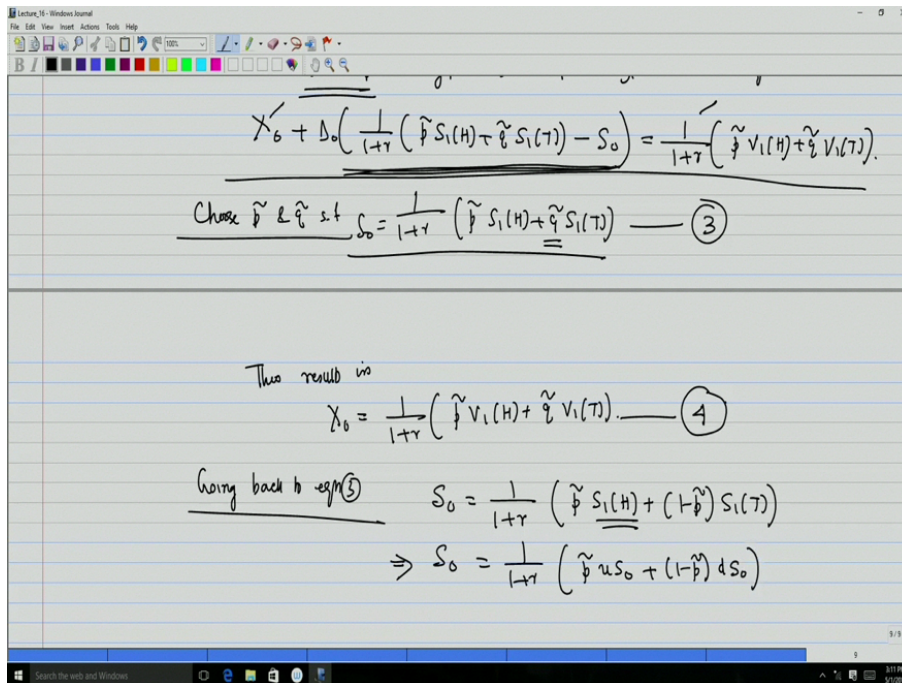 Lecture_16 - Windows Journal
File Edit View Insert Actions Tools Help
100%
B I
X₀ + Δ₀( 1/(1+r) ( p̃ S₁(H) + q̃ S₁(T) ) − S₀ ) = 1/(1+r) ( p̃ V₁(H) + q̃ V₁(T) ).
Choose p̃ & q̃ s.t S₀ = 1/(1+r) ( p̃ S₁(H) + q̃ S₁(T) ) —— ③
This results in
X₀ = 1/(1+r) ( p̃ V₁(H) + q̃ V₁(T) ). —— ④
Going back to eqn ③ S₀ = 1/(1+r) ( p̃ S₁(H) + (1-p̃) S₁(T) )
⇒ S₀ = 1/(1+r) ( p̃ u S₀ + (1-p̃) d S₀ )
9/9
9
Search the web and Windows
3:11 PM